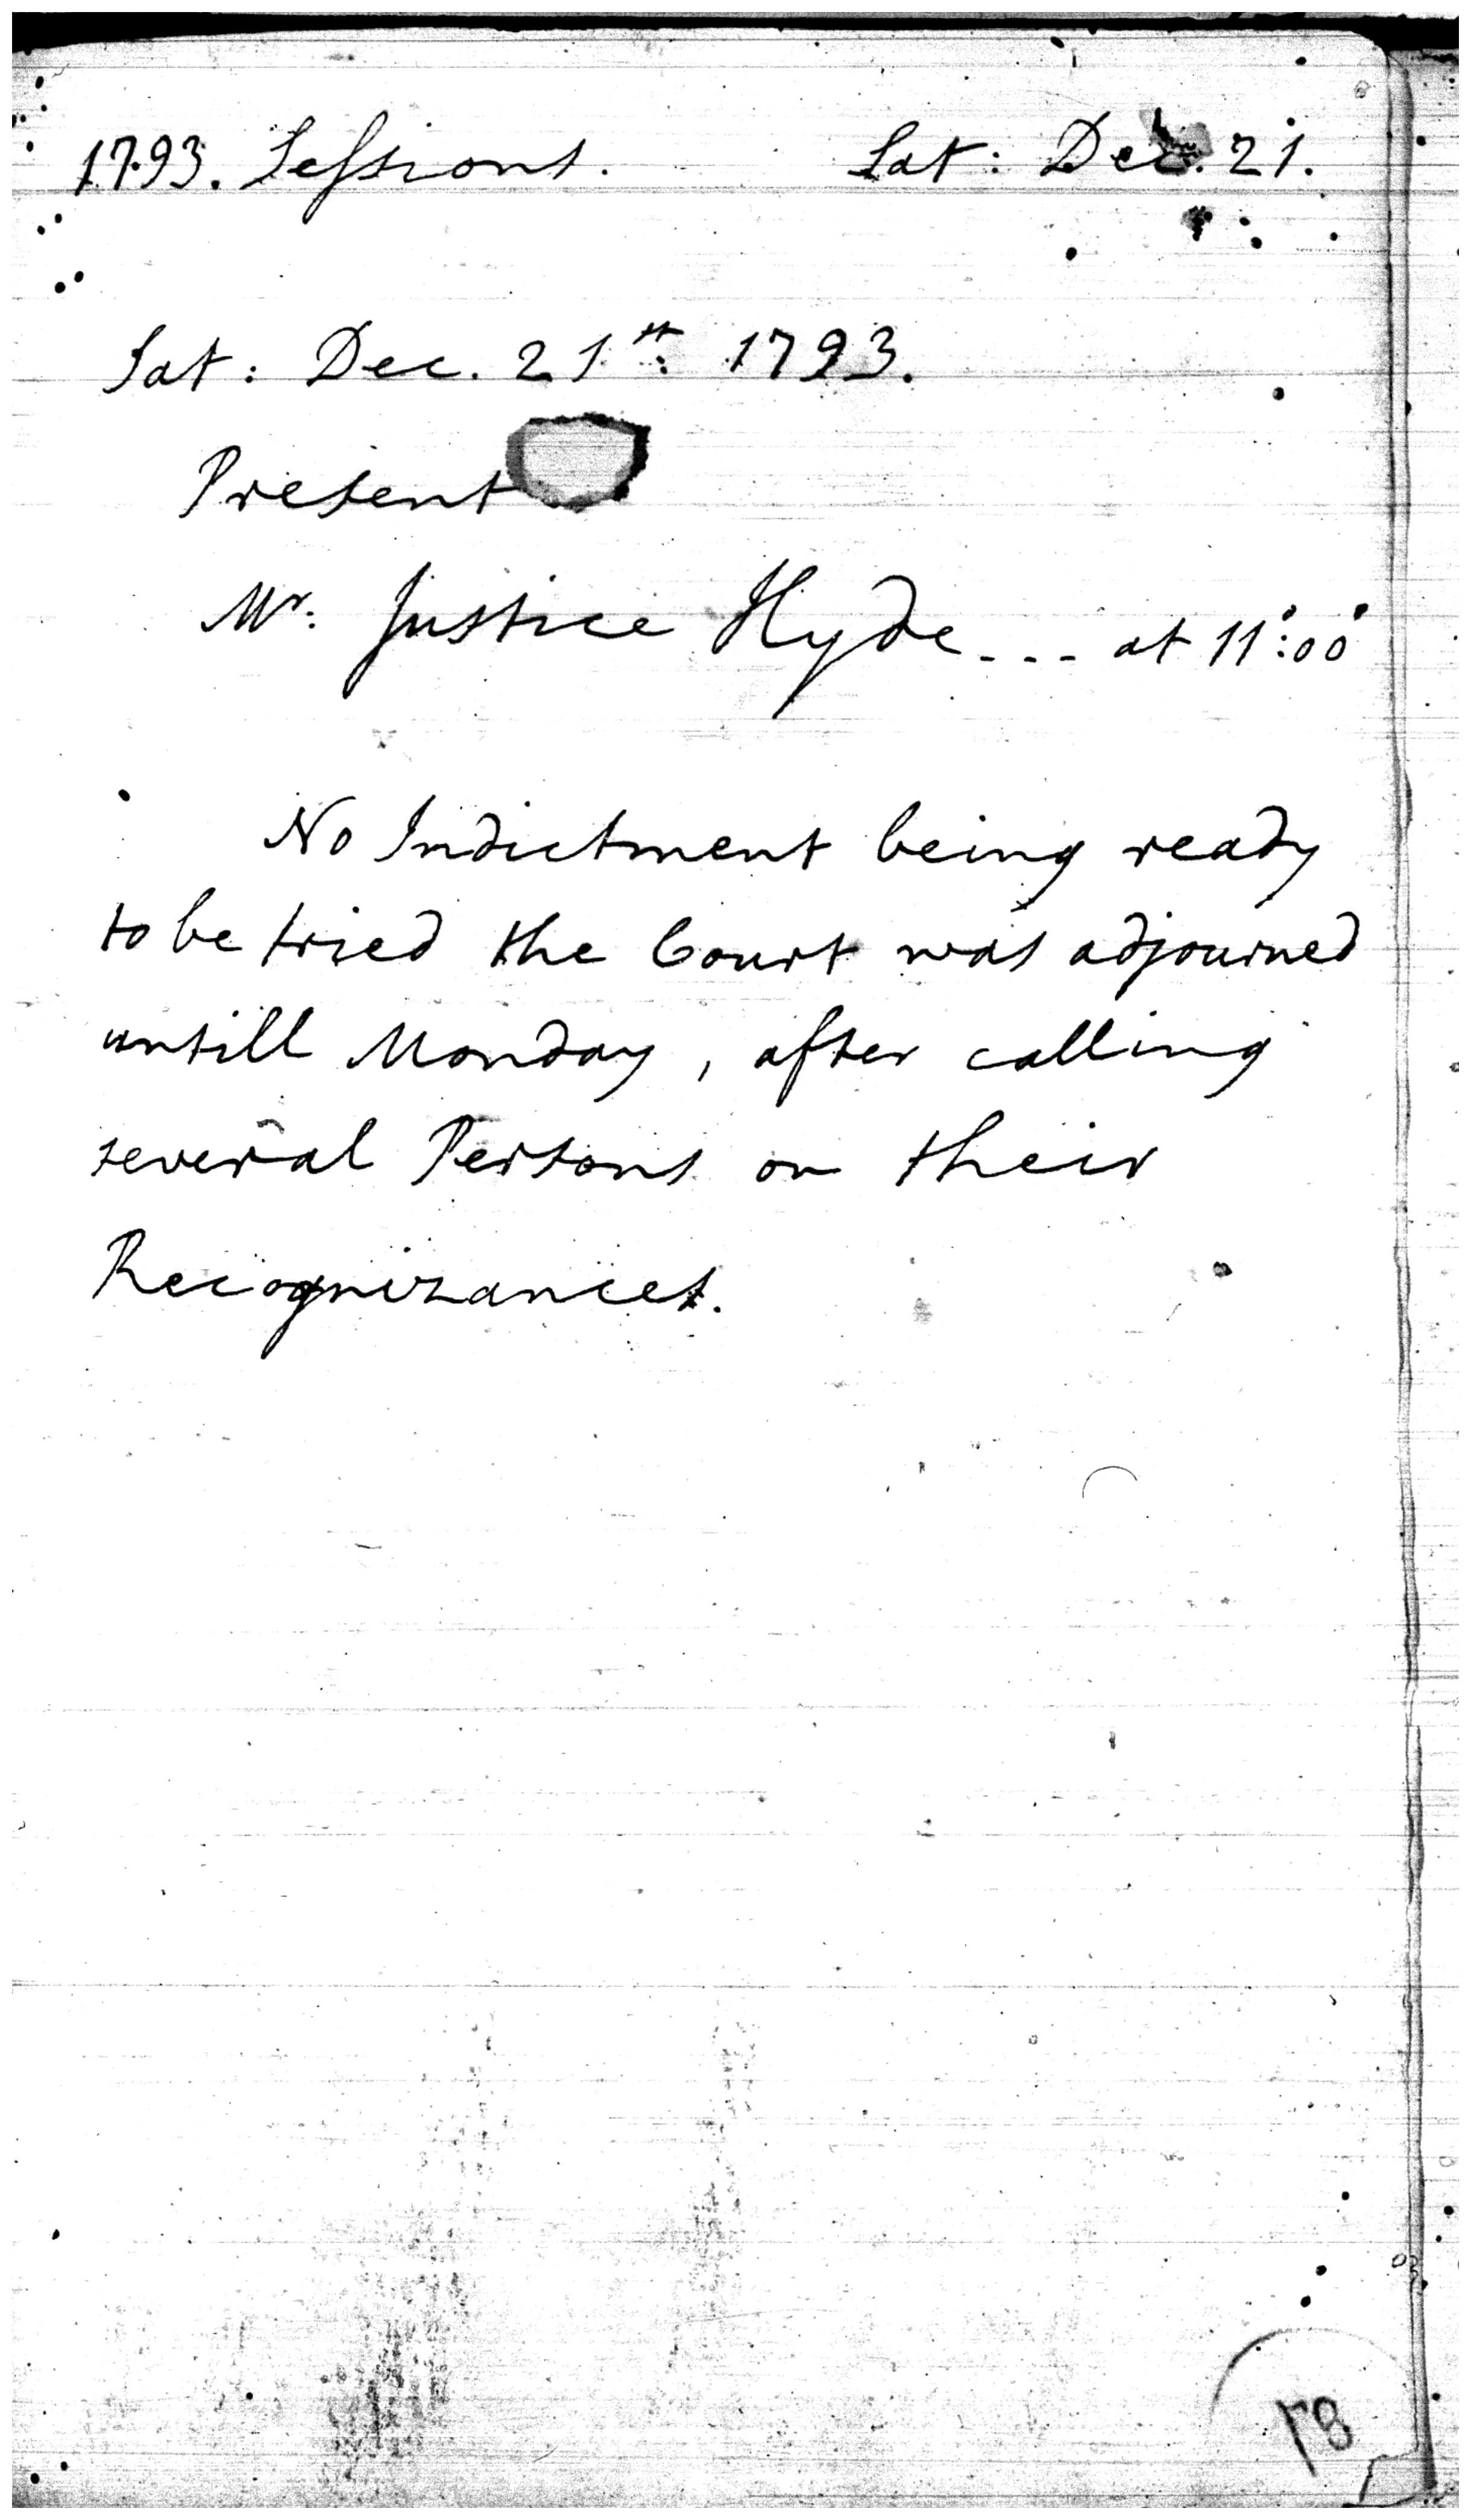 1793. Sessions. Sat: Dec. 21.
Sat: Dec. 21st: 1793.
Present
Mr. Justice Hyde --- at 11:00
No Indictment being ready
to be tried the Court was adjourned
untill Monday, after calling
several Persons on their
Recognizances.